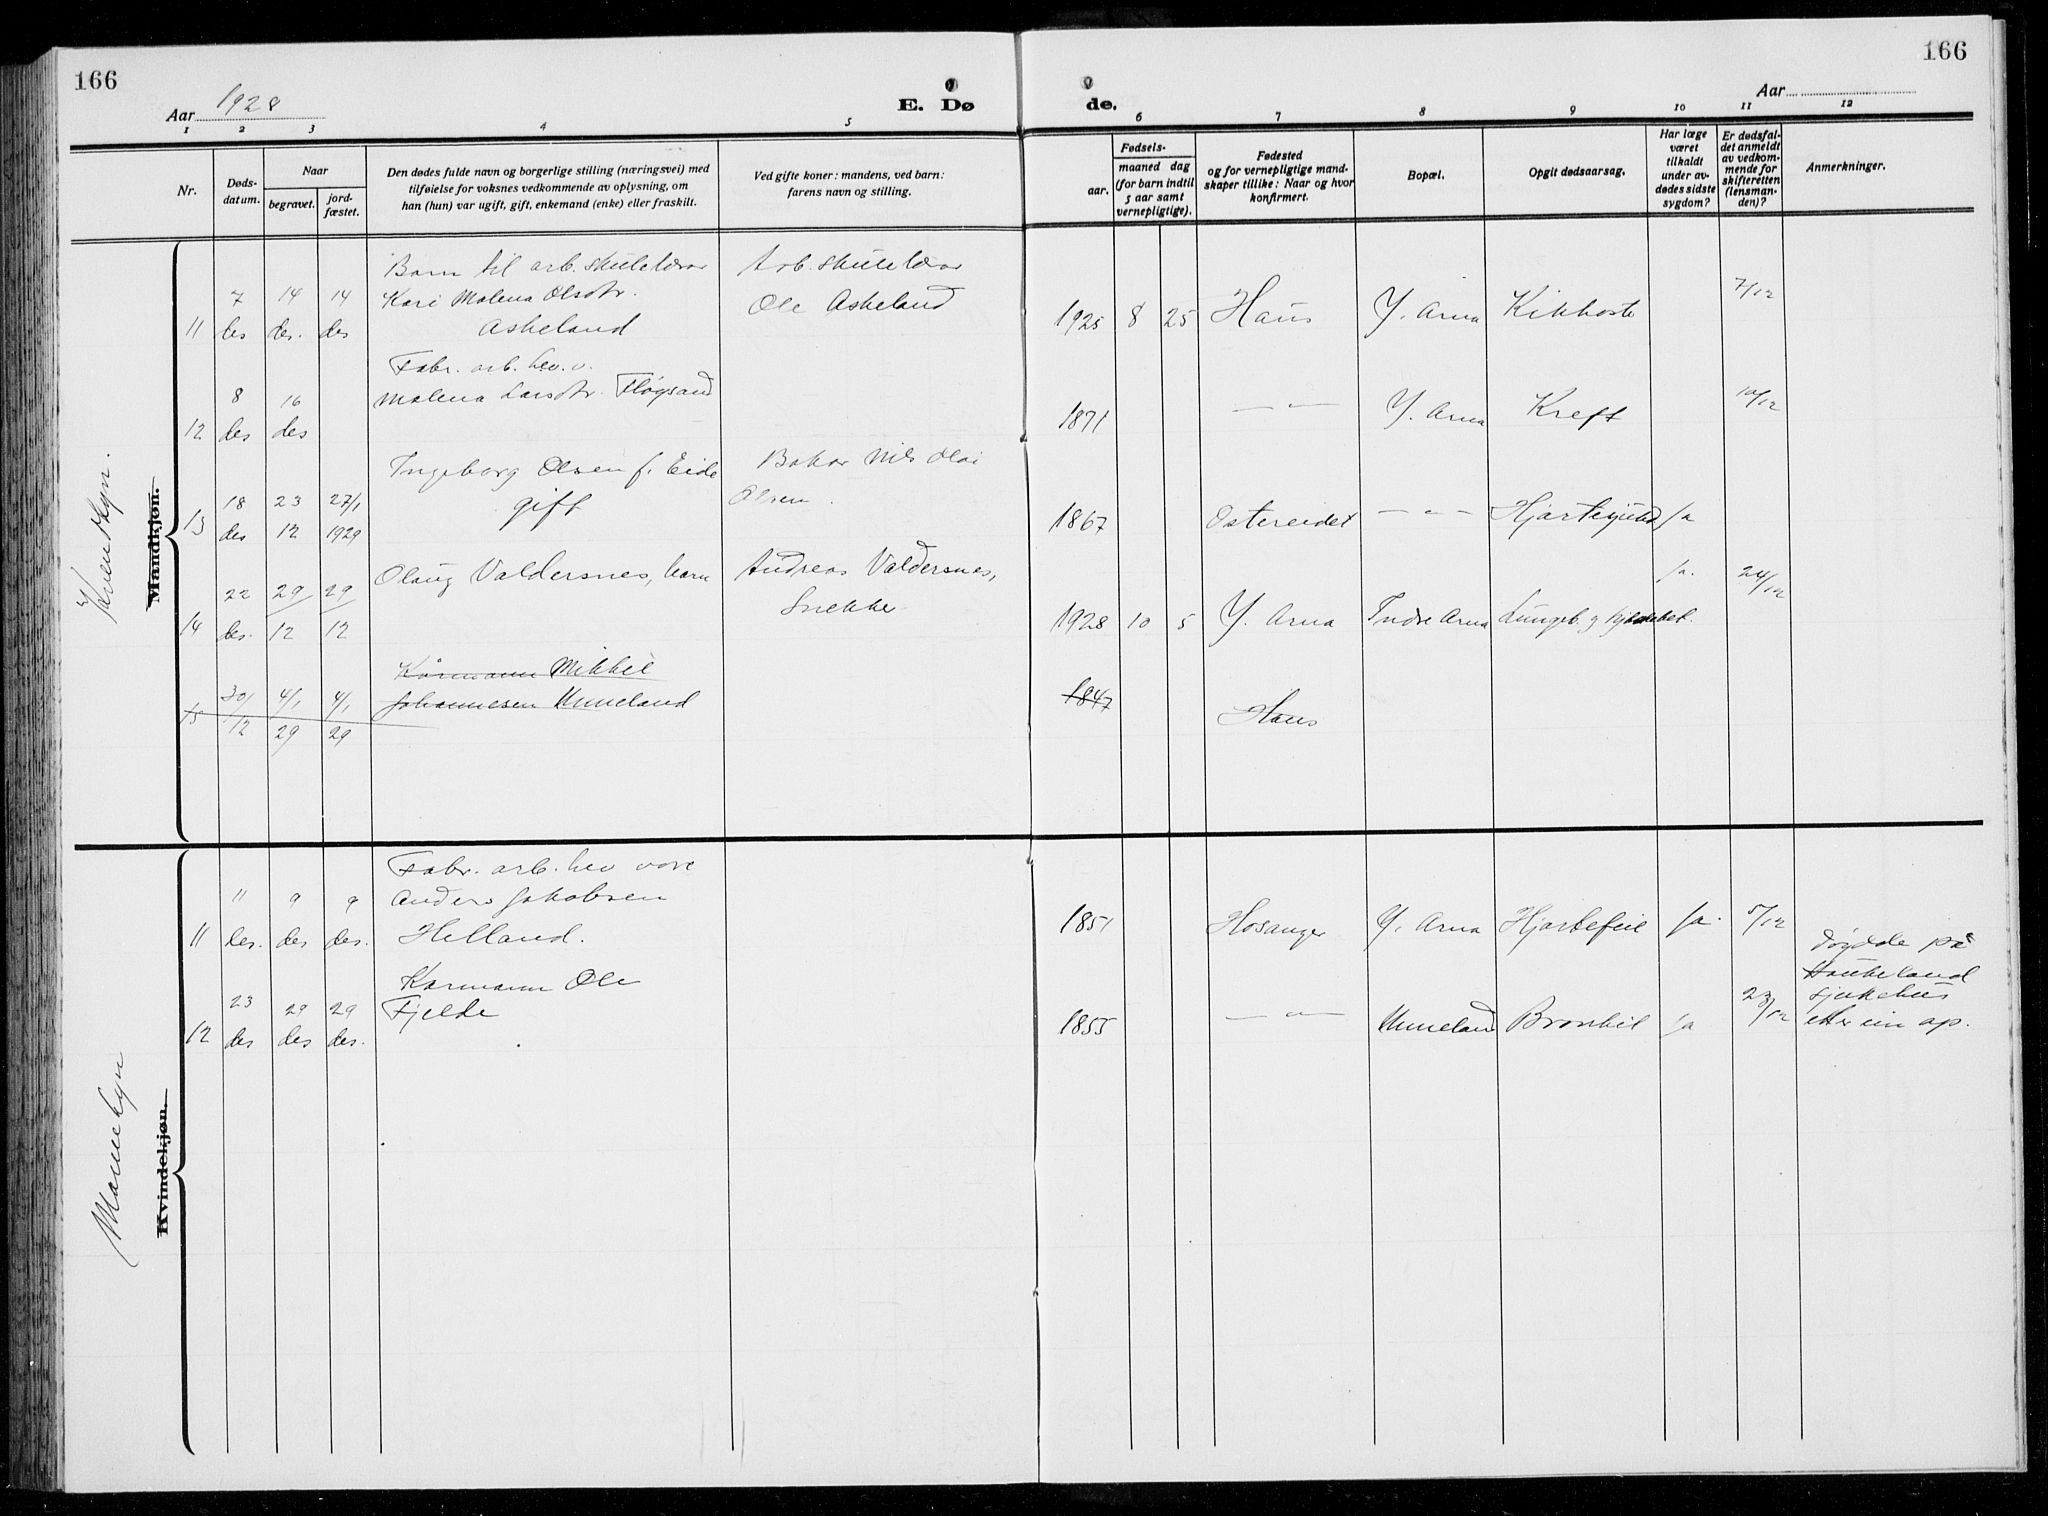 166
Aar 1928
E. Dø
de.
Aar
166
1 2 3 4 5 6 7 8 9 10 11 12
Nr.
Døds-
datum.
Naar
begravet.
jord-
fæstet.
Den dødes fulde navn og borgerlige stilling (næringsvei) med
tilføielse for voksnes vedkommende av oplysning, om
han (hun) var ugift, gift, enkemand (enke) eller fraskilt.
Ved gifte koner: mandens, ved barn:
farens navn og stilling.
Fødsels-
aar.
maaned dag
(for barn indtil
5 aar samt
vernepligtige).
Fødested
og for vernepligtige mand-
skaper tillike: Naar og hvor
konfirmert.
Bopæl.
Opgit dødsaarsag.
Har læge
været
tilkaldt
under av-
dødes sidste
sygdom?
Er dødsfal-
det anmeldt
av vedkom-
mende for
skifteretten
(lensman-
den)?
Anmerkninger.
Kvendkyn.
Mandkjøn.
Barn til arb. skulelærar Arb. skulelærar
7 14 14 Kari Malena Olsdtr. Ole Askeland 7/12
11 des des. des Askeland 1925 8 25 Haus Y. Arna Kikhoste
Fabr. arb. hev. v.
8 16 Malena Larsdtr. Fløgsand 10/12
12 des des 1871 — " — Y. Arna Kreft
Ingeborg Olsen f. Eide Bakar Nils Olai
18 23 27/1 gift Olsen.
13 des 12 1929 1867 Ostereidet — " — Ja
Olaug Valdersnes, barn Andreas Valdersnes, Ja. 24/12
22 29 29 Snekker
14 des. 12 12 1928 10 5 Y. Arna Indre Arna
Kårmann Mikkel
30/12 4/1 4/1 Johannesen Unneland 1847
15 29 29 Haus
Mannekyn
Kvindekjøn.
Fabr. arb. hev vore
11 9 9 Anders Jakobsen
11 des. des des. Helland. 1851 Hosanger Y. Arna Hjartefeil Ja. 5/12
Karmann Ole
23 29 29 Fjelde
12 des des des. 1855 — " — Unneland Ja 23/12
døydde på
Haukeland
sjukehus
etter ein op.